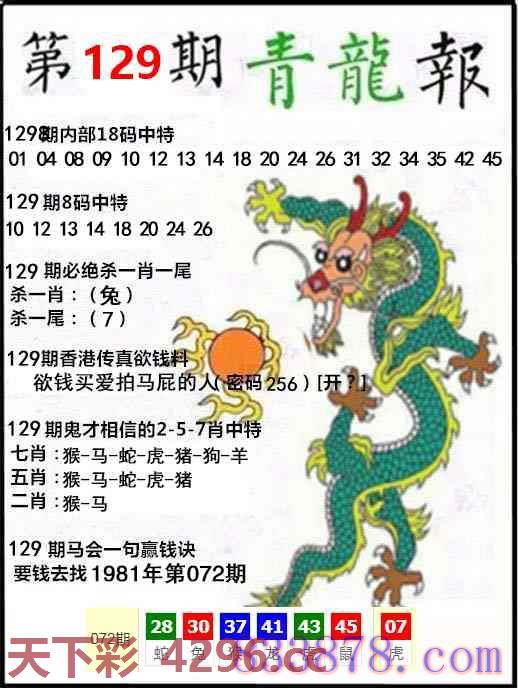 第129期青龍報
129期内部18码中特
01 04 08 09 10 12 13 14 18 20 24 26 31 32 34 35 42 45
129期8码中特
10 12 13 14 18 20 24 26
129期必绝杀一肖一尾
杀一肖：（兔）
杀一尾：（7）
129期香港传真欲钱料
欲钱买爱拍马屁的人（密码256）[开？]
129期鬼才相信的2-5-7肖中特
七肖：猴-马-蛇-虎-猪-狗-羊
五肖：猴-马-蛇-虎-猪
二肖：猴-马
129期马会一句赢钱诀
要钱去找1981年第072期
072期 28 30 37 41 43 45 07
蛇 兔 猴 龙 虎 鼠 虎
天下彩 4296.cc
3878.com